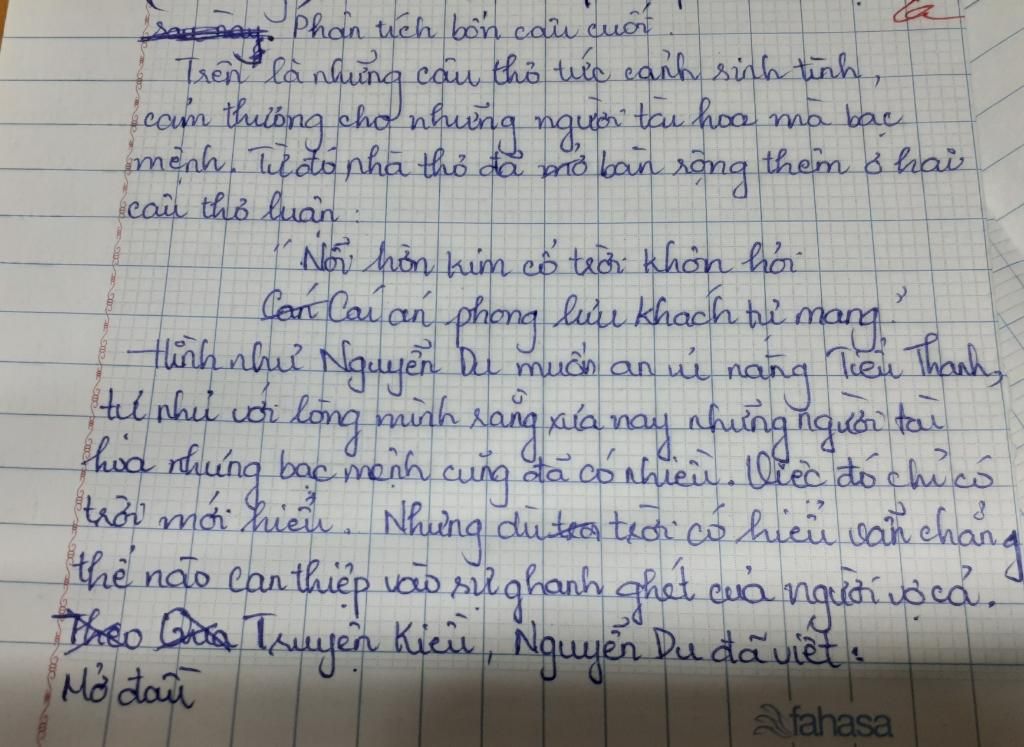 Phân tích bốn câu cuối.
Trên là những câu thơ tức cảnh sinh tình,
cảm thương cho những người tài hoa mà bạc
mệnh. Từ đó nhà thơ đã mở bàn rộng thêm ở hai
câu thơ luận:
"Nỗi hờn kim cổ trời khôn hỏi
Cái án phong lưu khách tự mang"
Hình như Nguyễn Du muốn an ủi nàng Tiểu Thanh,
tự nhủ với lòng mình rằng xưa nay những người tài
hoa nhưng bạc mệnh cũng đã có nhiều. Việc đó chỉ có
trời mới hiểu. Nhưng dù trời có hiểu vẫn chẳng
thể nào can thiệp vào sự ghanh ghét của người vợ cả.
Truyện Kiều, Nguyễn Du đã viết:
Mở đầu
fahasa